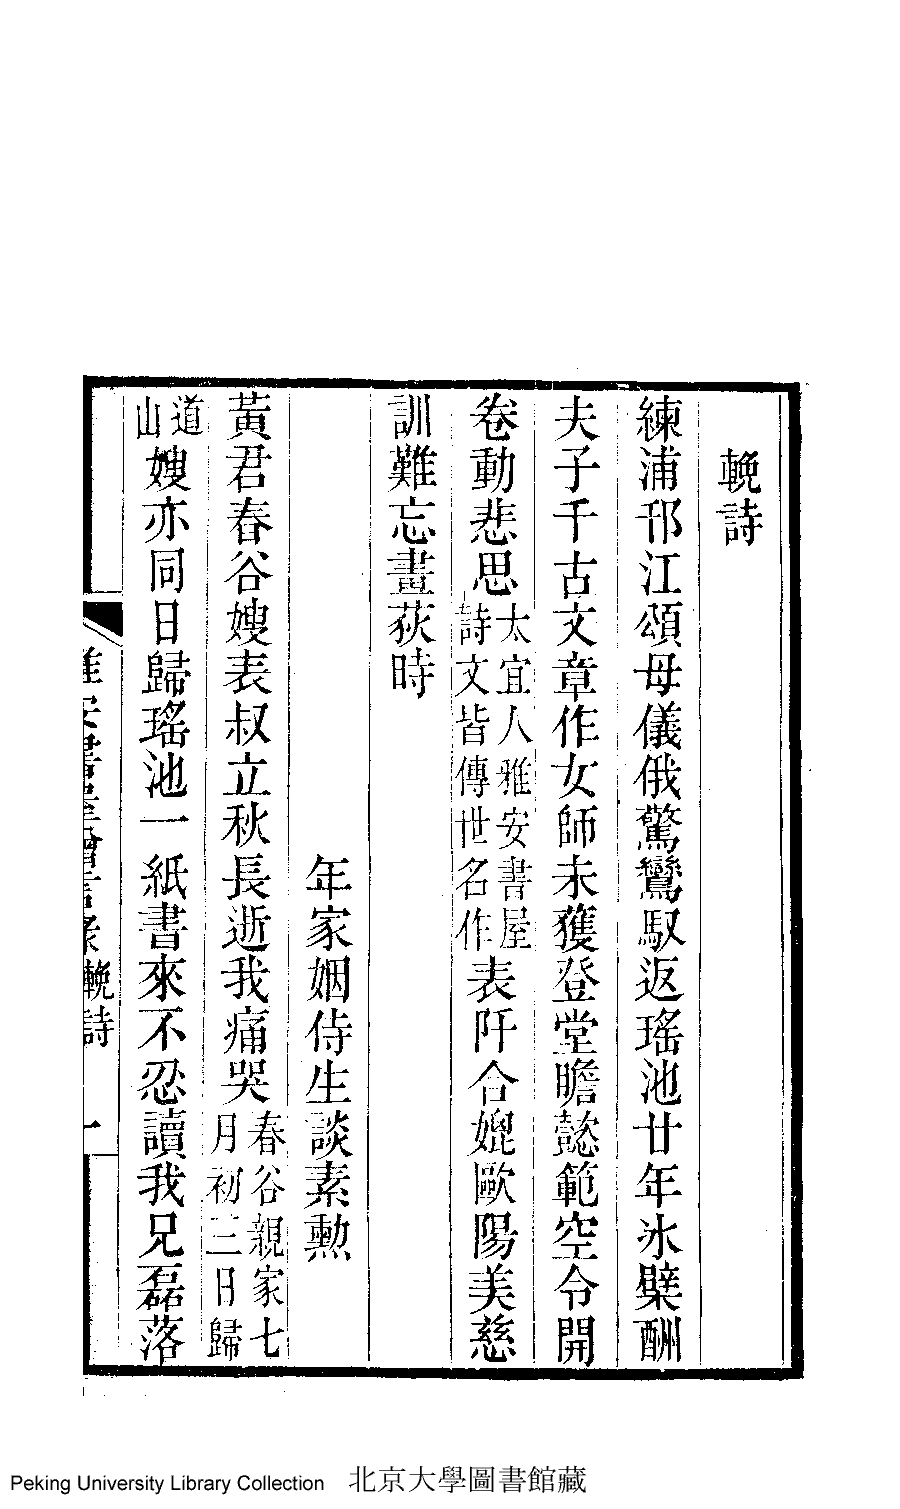 輓詩
練浦邗江頌母儀俄驚鸞馭返瑤池廿年氷檗酬
夫子千古文章作女師未獲登堂瞻懿範空令開
卷動悲思太宜人雅安書屋詩文皆傳世名作表阡合媲歐陽美慈
訓難忘畫荻時
年家姻侍生談素勲
黃君春谷嫂表叔立秋長逝我痛哭春谷親家七月初三日歸
道山嫂亦同日歸瑤池一紙書來不忍讀我兄磊落
雅安書屋贈言錄 輓詩 一
Peking University Library Collection 北京大學圖書館藏